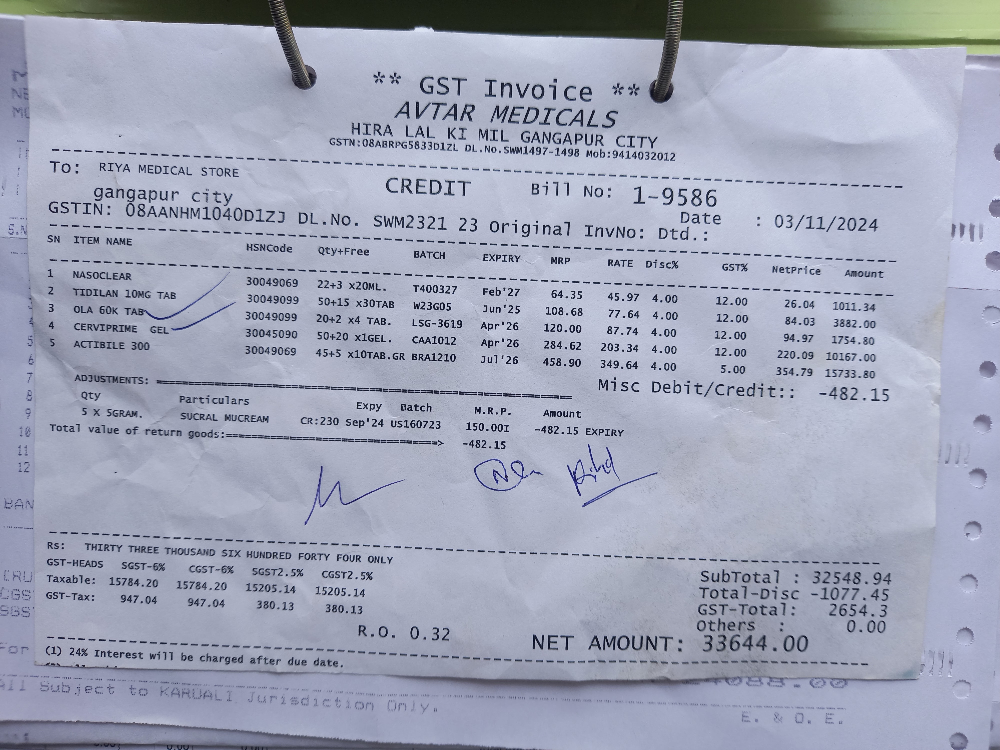 ** GST Invoice **
AVTAR MEDICALS
HIRA LAL KI MIL GANGAPUR CITY
GSTN:08ABRPG5833D1ZL DL.No.SWM1497-1498 Mob:9414032012
To: RIYA MEDICAL STORE
gangapur city
CREDIT Bill No: 1-9586
GSTIN: 08AANHM1040D1ZJ DL.No. SWM2321 23 Original InvNo: Dtd.:
Date : 03/11/2024
SN ITEM NAME HSNCode Qty+Free BATCH EXPIRY MRP RATE Disc% GST% NetPrice Amount
1 NASOCLEAR 30049069 22+3 x20ML. T400327 Feb'27 64.35 45.97 4.00 12.00 26.04 1011.34
2 TIDILAN 10MG TAB 30049099 50+15 x30TAB W23G05 Jun'25 108.68 77.64 4.00 12.00 84.03 3882.00
3 OLA 60K TAB 30049099 20+2 x4 TAB. LSG-3619 Apr'26 120.00 87.74 4.00 12.00 94.97 1754.80
4 CERVIPRIME GEL 30045090 50+20 x1GEL. CAA1012 Apr'26 284.62 203.34 4.00 12.00 220.09 10167.00
5 ACTIBILE 300 30049069 45+5 x10TAB.GR BRA1210 Jul'26 458.90 349.64 4.00 5.00 354.79 15733.80
Misc Debit/Credit:: -482.15
ADJUSTMENTS:
Qty Particulars Expy Batch M.R.P. Amount
5 X 5GRAM. SUCRAL MUCREAM CR:230 Sep'24 US160723 150.00I -482.15 EXPIRY
Total value of return goods:===> -482.15
RS: THIRTY THREE THOUSAND SIX HUNDRED FORTY FOUR ONLY
GST-HEADS SGST-6% CGST-6% SGST2.5% CGST2.5%
Taxable: 15784.20 15784.20 15205.14 15205.14
GST-Tax: 947.04 947.04 380.13 380.13
R.O. 0.32
SubTotal : 32548.94
Total-Disc -1077.45
GST-Total: 2654.3
Others : 0.00
NET AMOUNT: 33644.00
(1) 24% Interest will be charged after due date.
All Subject to KARUALI Jurisdiction Only.
E. & O. E.